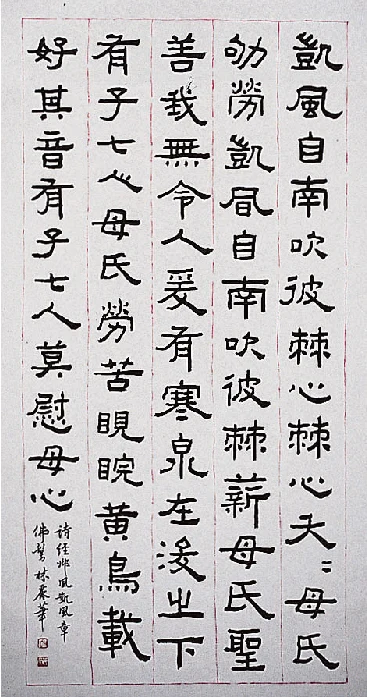 凱風自南吹彼棘心棘心夭〻母氏
劬勞凱風自南吹彼棘薪母氏聖
善我無令人爰有寒泉在浚之下
有子七人母氏勞苦睍睆黃鳥載
好其音有子七人莫慰母心
詩經邶風凱風章